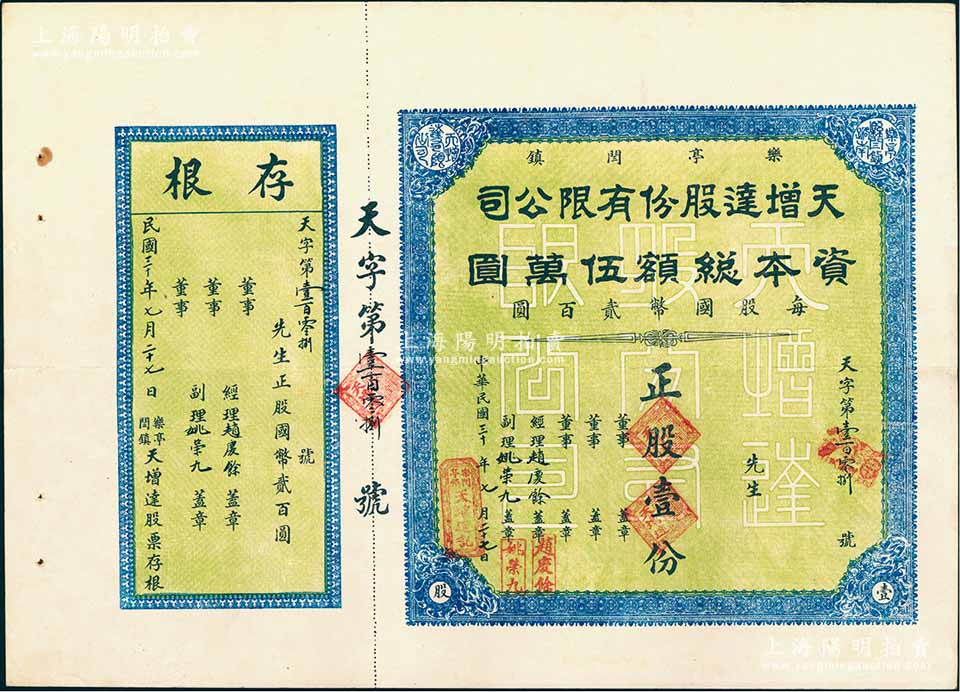 上海陽明拍賣
www.yangmingauction.com
樂亭閆鎮
天增達股份有限公司
資本縂額伍萬圓
每股國幣貳百圓
天字第壹百零捌號
先生
正股壹份
董事 蓋章
董事 蓋章
董事 蓋章
經理趙慶餘 蓋章
副理姚榮九 蓋章
中華民國三十年七月二十七日
趙慶餘
姚榮九
壹
股
天增達股
份有限公司
天字第壹百零捌號
存根
天字第壹百零捌號
先生正股國幣貳百圓
董事 經理趙慶餘 蓋章
董事 副理姚榮九 蓋章
董事
民國三十年七月二十七日 樂亭閆鎮天增達股票存根
上海陽明拍賣
www.yangmingauction.com
上海陽明拍賣
www.yangmingauction.com